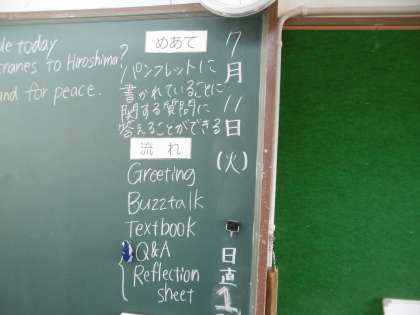 today
cranes to Hiroshima?
and for peace.
めあて
パンフレットに
書かれていることに
関する質問に
答えることができる
流れ
Greeting
Buzztalk
Textbook
Q&A
Reflection
sheet
7月11日(火)
日直
1